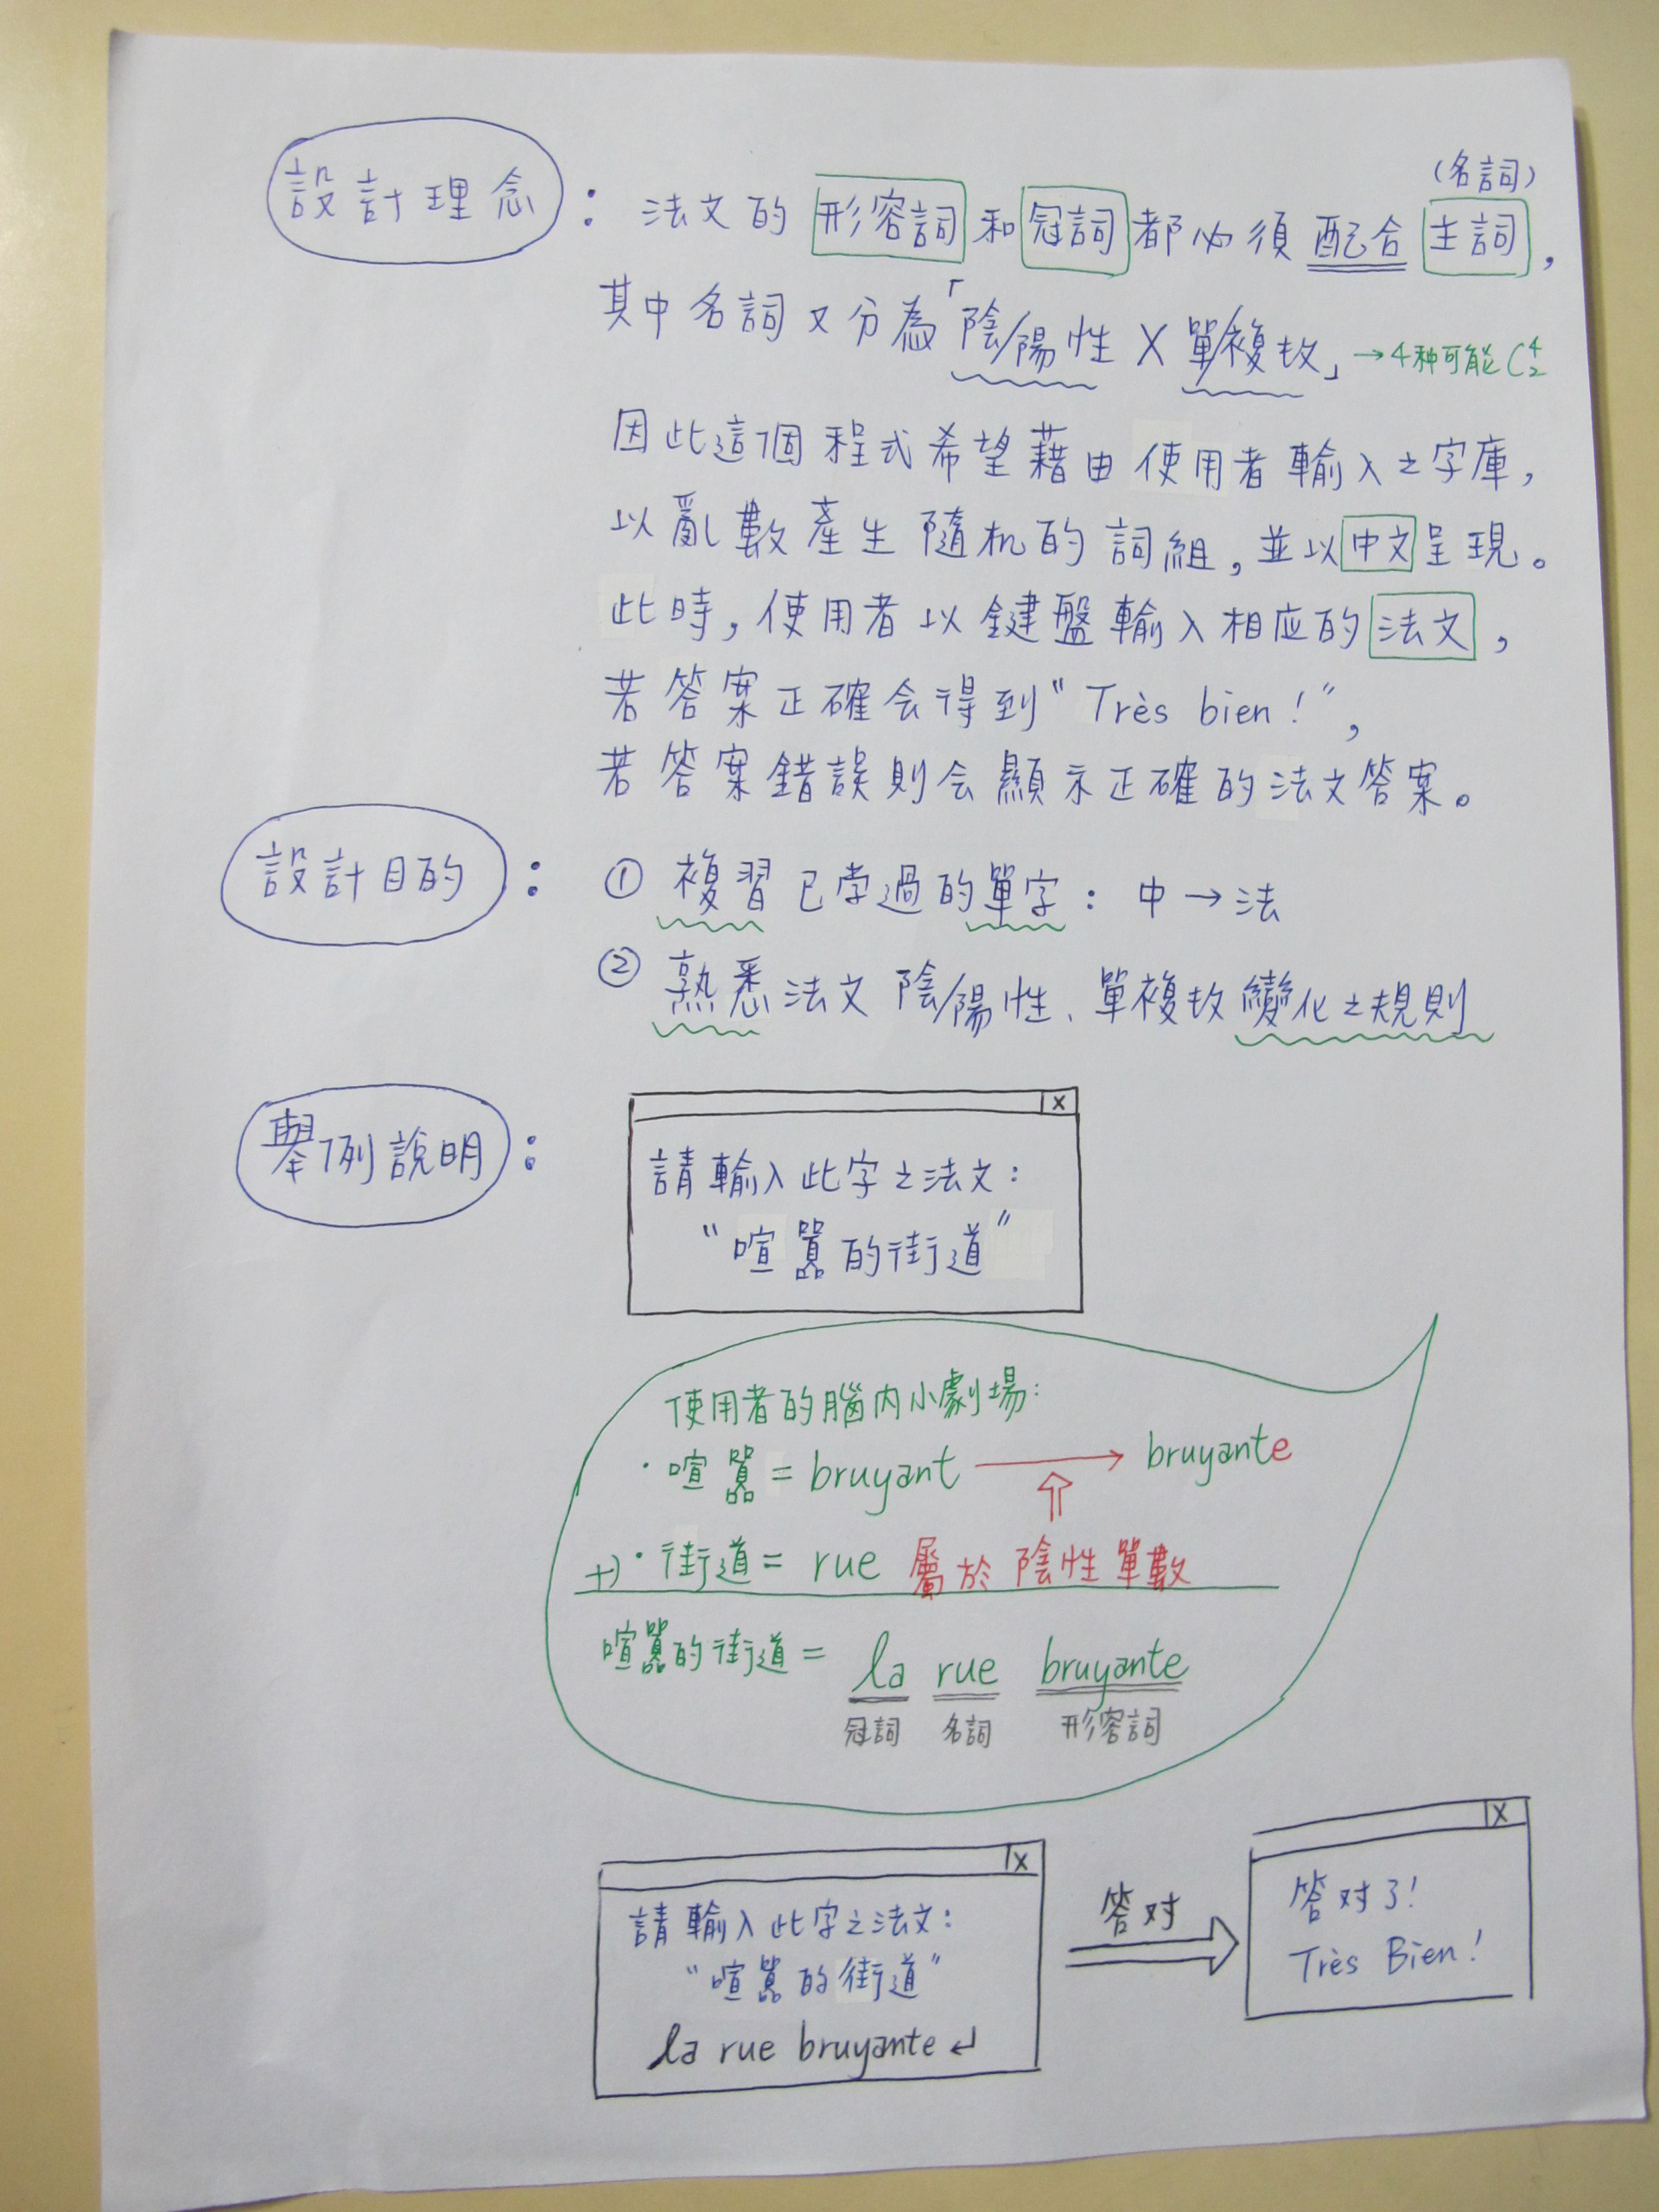 設計理念：法文的形容詞和冠詞都必須配合主詞，
(名詞)
其中名詞又分為「陰/陽性X單/複数」→4种可能C⁴₂
因此這個程式希望藉由使用者輸入之字庫，
以亂數產生隨机的詞組，並以中文呈現。
此時，使用者以鍵盤輸入相应的法文，
若答案正確会得到“Très bien！”，
若答案錯誤則会顯示正確的法文答案。
設計目的：① 複習已学過的單字：中→法
② 熟悉法文陰/陽性、單複数變化之規則
舉例說明：
X
請輸入此字之法文：
“喧囂的街道”
使用者的腦內小劇場：
·喧囂=bruyant → bruyante
+)·街道=rue 屬於陰性單數
喧囂的街道= la rue bruyante
冠詞 名詞 形容詞
X
請輸入此字之法文：
“喧囂的街道”
la rue bruyante ↵
答对
X
答对了！
Très Bien！